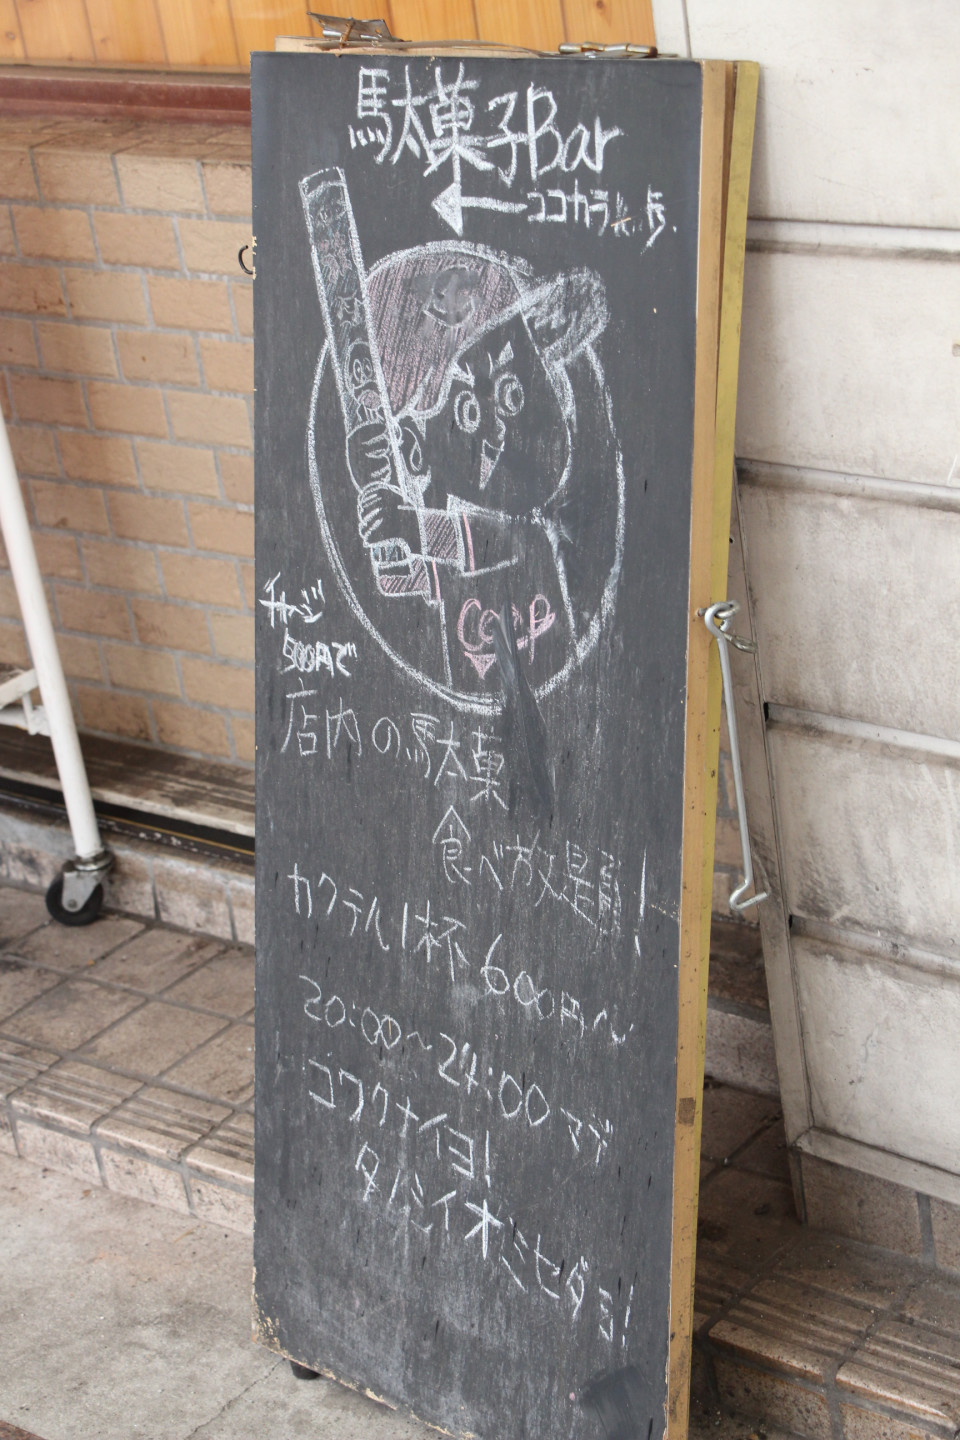 駄菓子Bar
ココカラ 歩
CARP
チャージ
500円で
店内の駄菓
食べ放題!
カクテル1杯 600円〜
20:00〜24:00マデ
コワクナイヨ!
タノシイオミセダヨ!